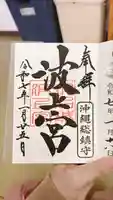 奉拝
沖縄総鎮守
波上宮
令和七年一月廿五日